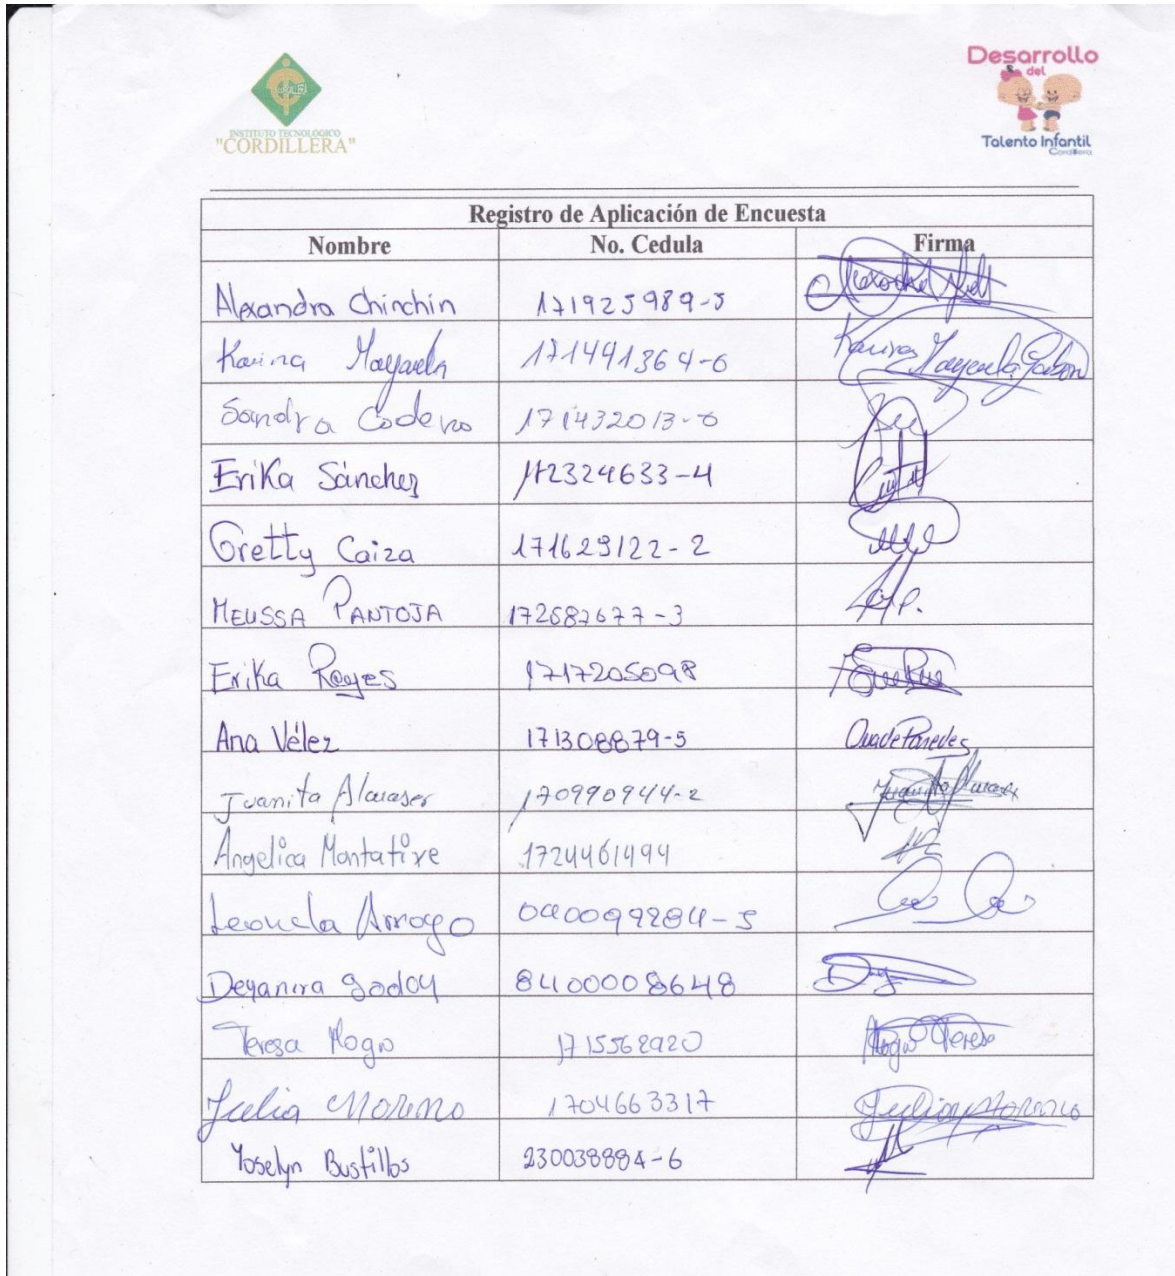 INSTITUTO TECNOLÓGICO
"CORDILLERA"
Desarrollo
del
Talento Infantil
Cordillera
Registro de Aplicación de Encuesta
Nombre No. Cedula Firma
Alexandra Chinchin 171925989-5
Karina Mayarela 171441364-6 Karina Mayarela
Sandra Codeno 171432013-0
Erika Sánchez 172324633-4
Gretty Caiza 171629122-2
MELISSA PANTOJA 172682677-3
Erika Reyes 1717205098
Ana Vélez 171308879-5
Juanita 170990944-2 Juanita
Angelica Montatixe 1724461494
Arroyo 040099284-5
Deyanira Godoy 8400008648
Teresa Mogro 1715562920 Teresa
Julia Moreno 1704663317 Julia Moreno
Yoselyn Bustillos 230038884-6